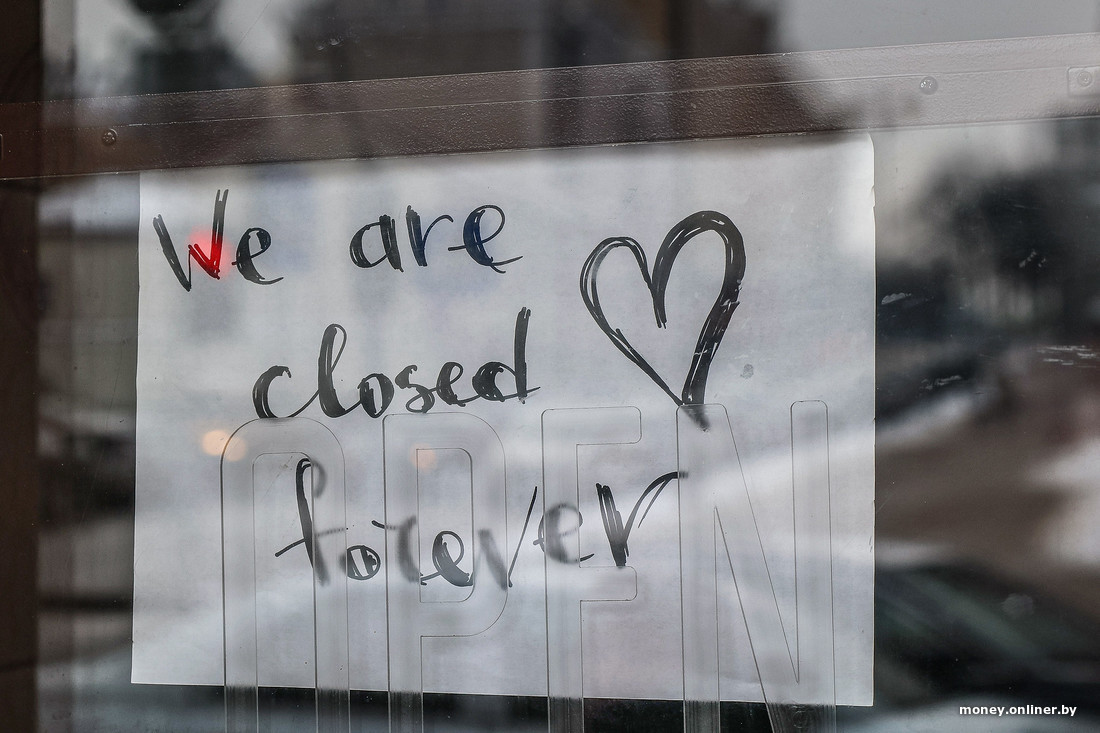 We are
closed
OPEN
forever
money.onliner.by